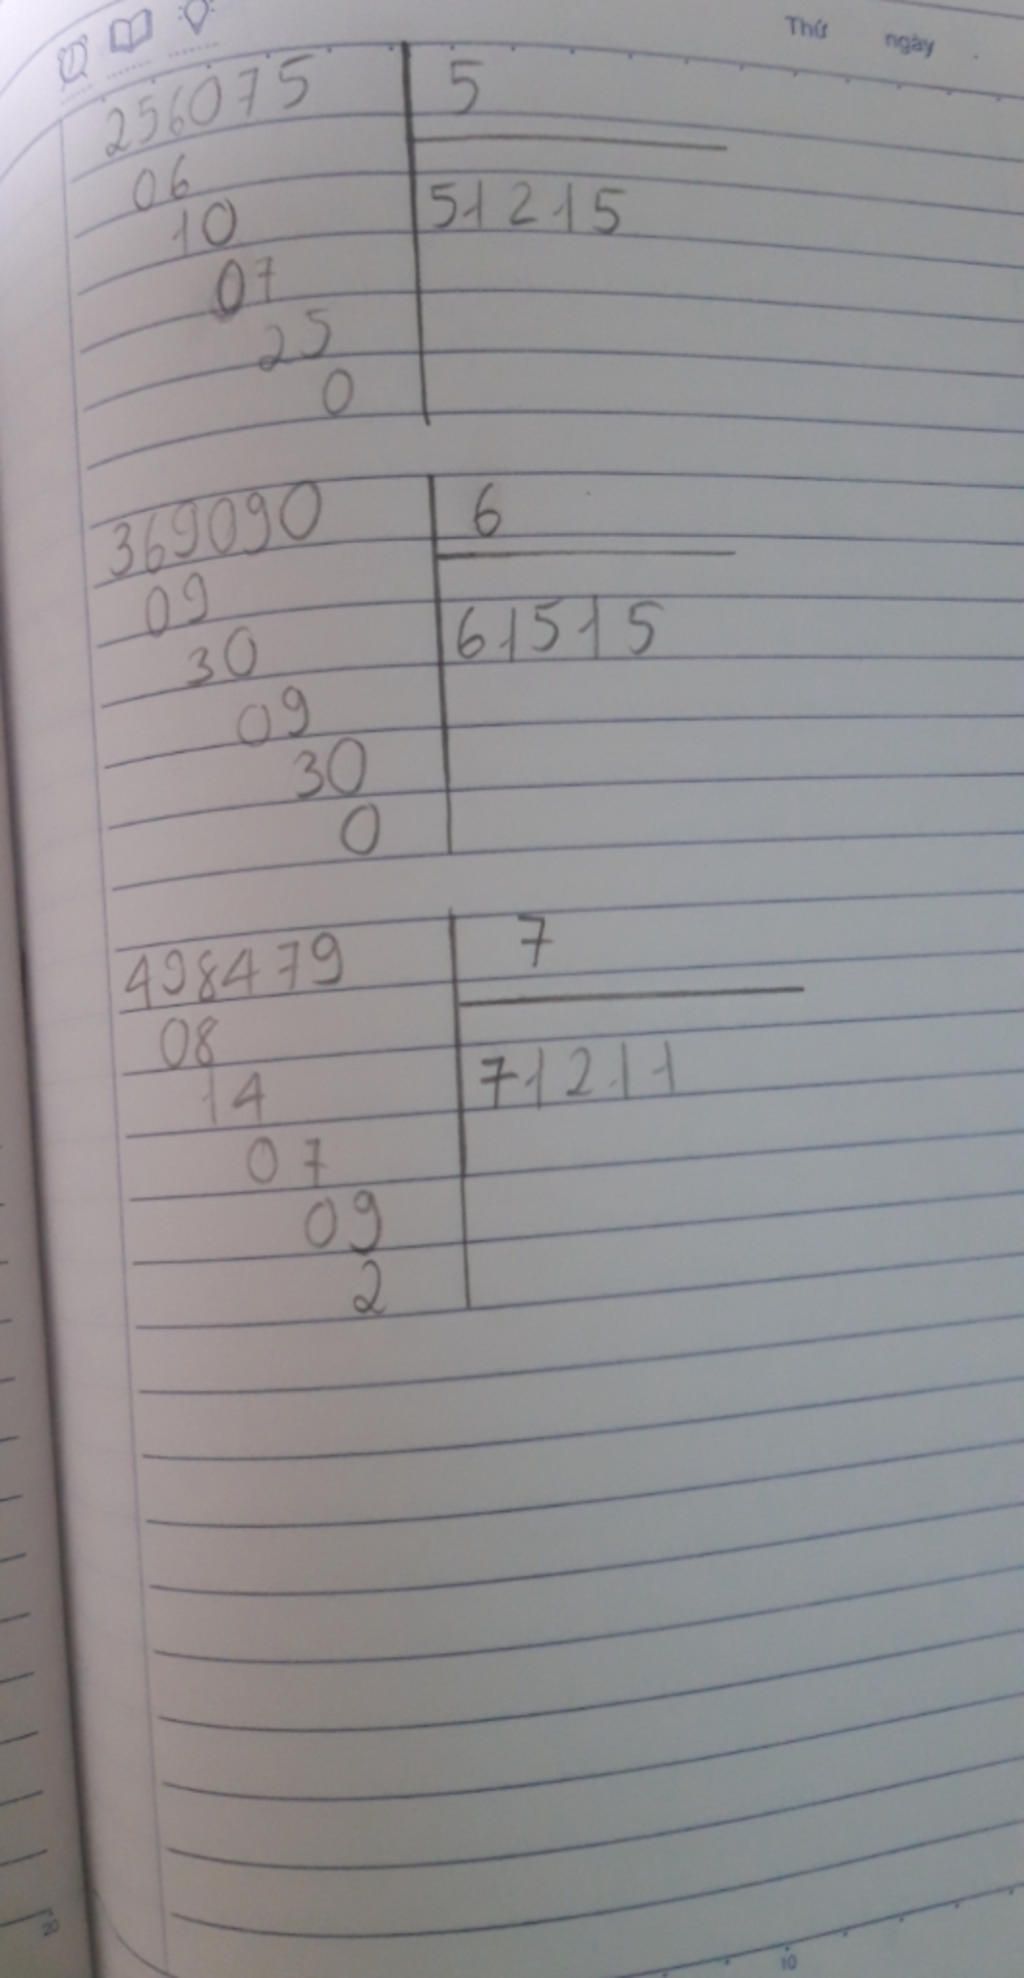 Thứ ngày
256075 5
06 51215
10
07
25
0
369090 6
09 61515
30
09
30
0
498479 7
08 71211
14
07
09
2
20
10